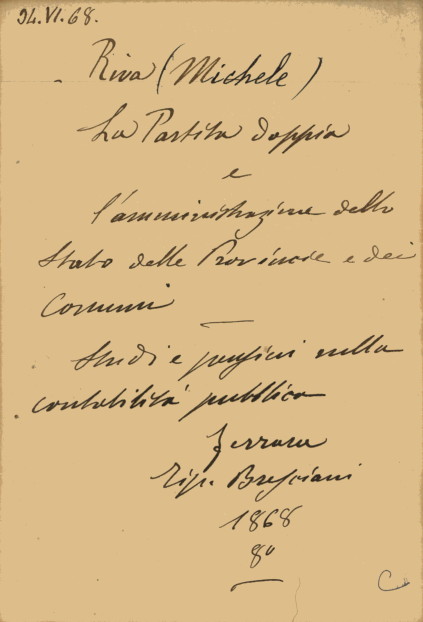 94.VI.68.
Riva (Michele)
La Partita doppia
e
l'amministrazione dello
Stato delle Provincie e dei
Comuni
Studi e pensieri sulla
contabilità pubblica
Ferrara
Tip. Bresciani
1868
8°
C